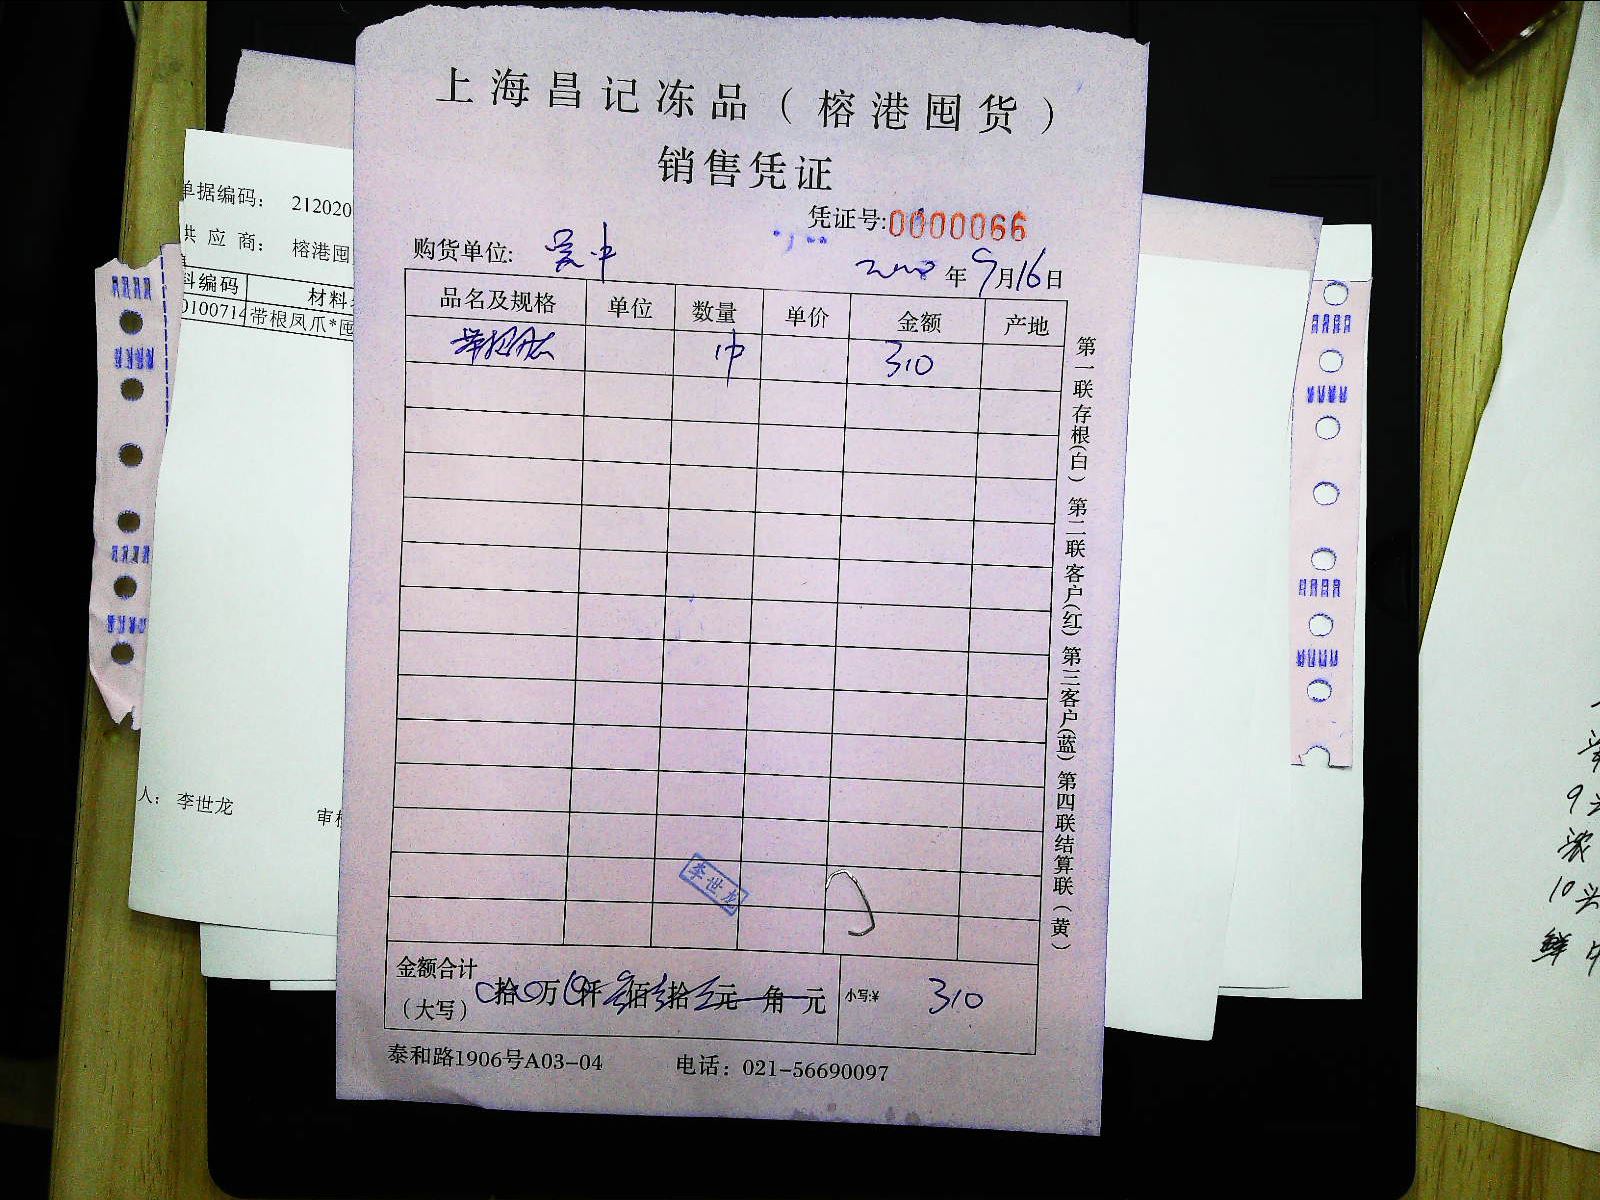 上海昌记冻品（榕港囤货）
销售凭证
凭证号:0000066
购货单位:
年9月16日
品名及规格 单位 数量 单价 金额 产地
310
李世龙
金额合计
（大写） 拾 万 仟 佰 拾 元 角 元 小写:¥ 310
泰和路1906号A03-04 电话：021-56690097
第一联存根(白) 第二联客户(红) 第三客户(蓝) 第四联结算联(黄)
单据编码： 212020
供 应 商： 榕港囤
料编码 材料
0100714 带根凤爪*囤
人： 李世龙 审核
9
10
鲜